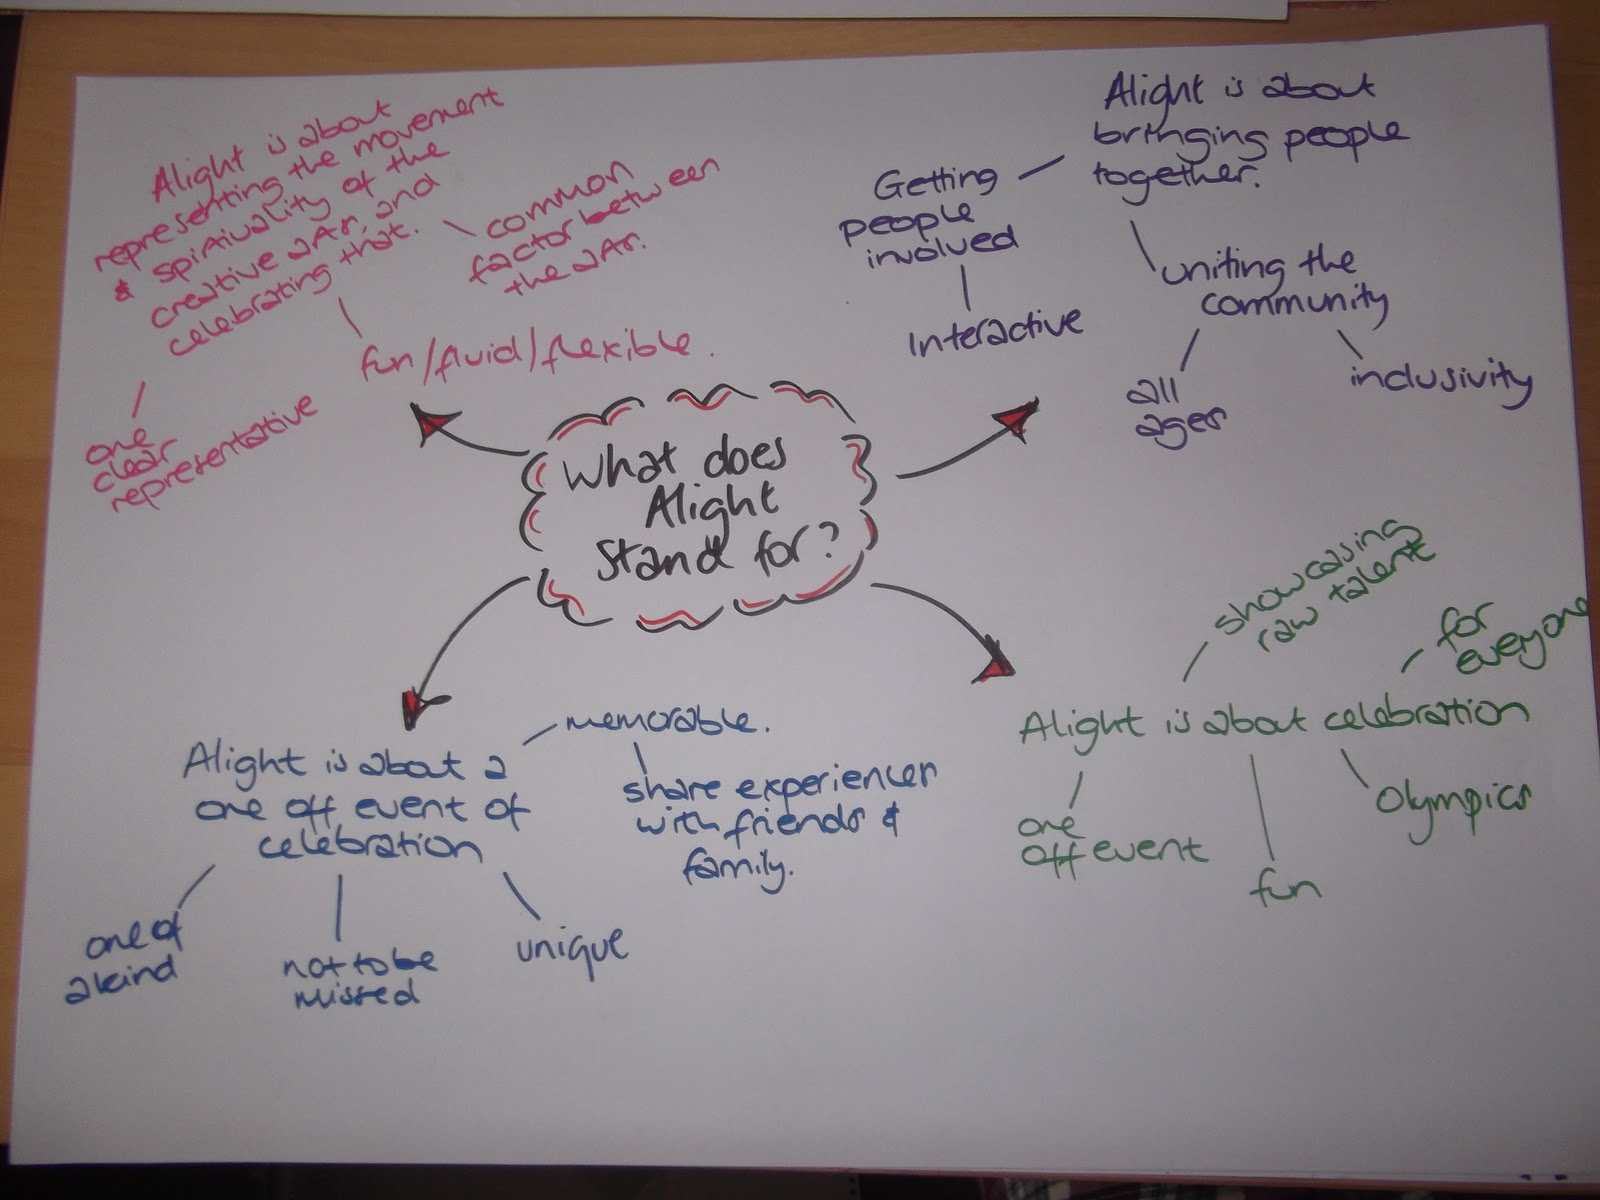 What does
Alight
Stand for?
Alight is about
representing the movement
& spirituality of the
creative arts, and
celebrating that.
common
factor between
the arts.
fun/fluid/flexible.
one
clear
representative
Alight is about
bringing people
together.
Getting
people
involved
Interactive
uniting the
community
all
ages
inclusivity
Alight is about a
one off event of
celebration
memorable.
share experiences
with friends &
family.
one of
a kind
not to be
missed
unique
Alight is about celebration
showcasing
raw talent
for
everyone
one
off event
fun
Olympics